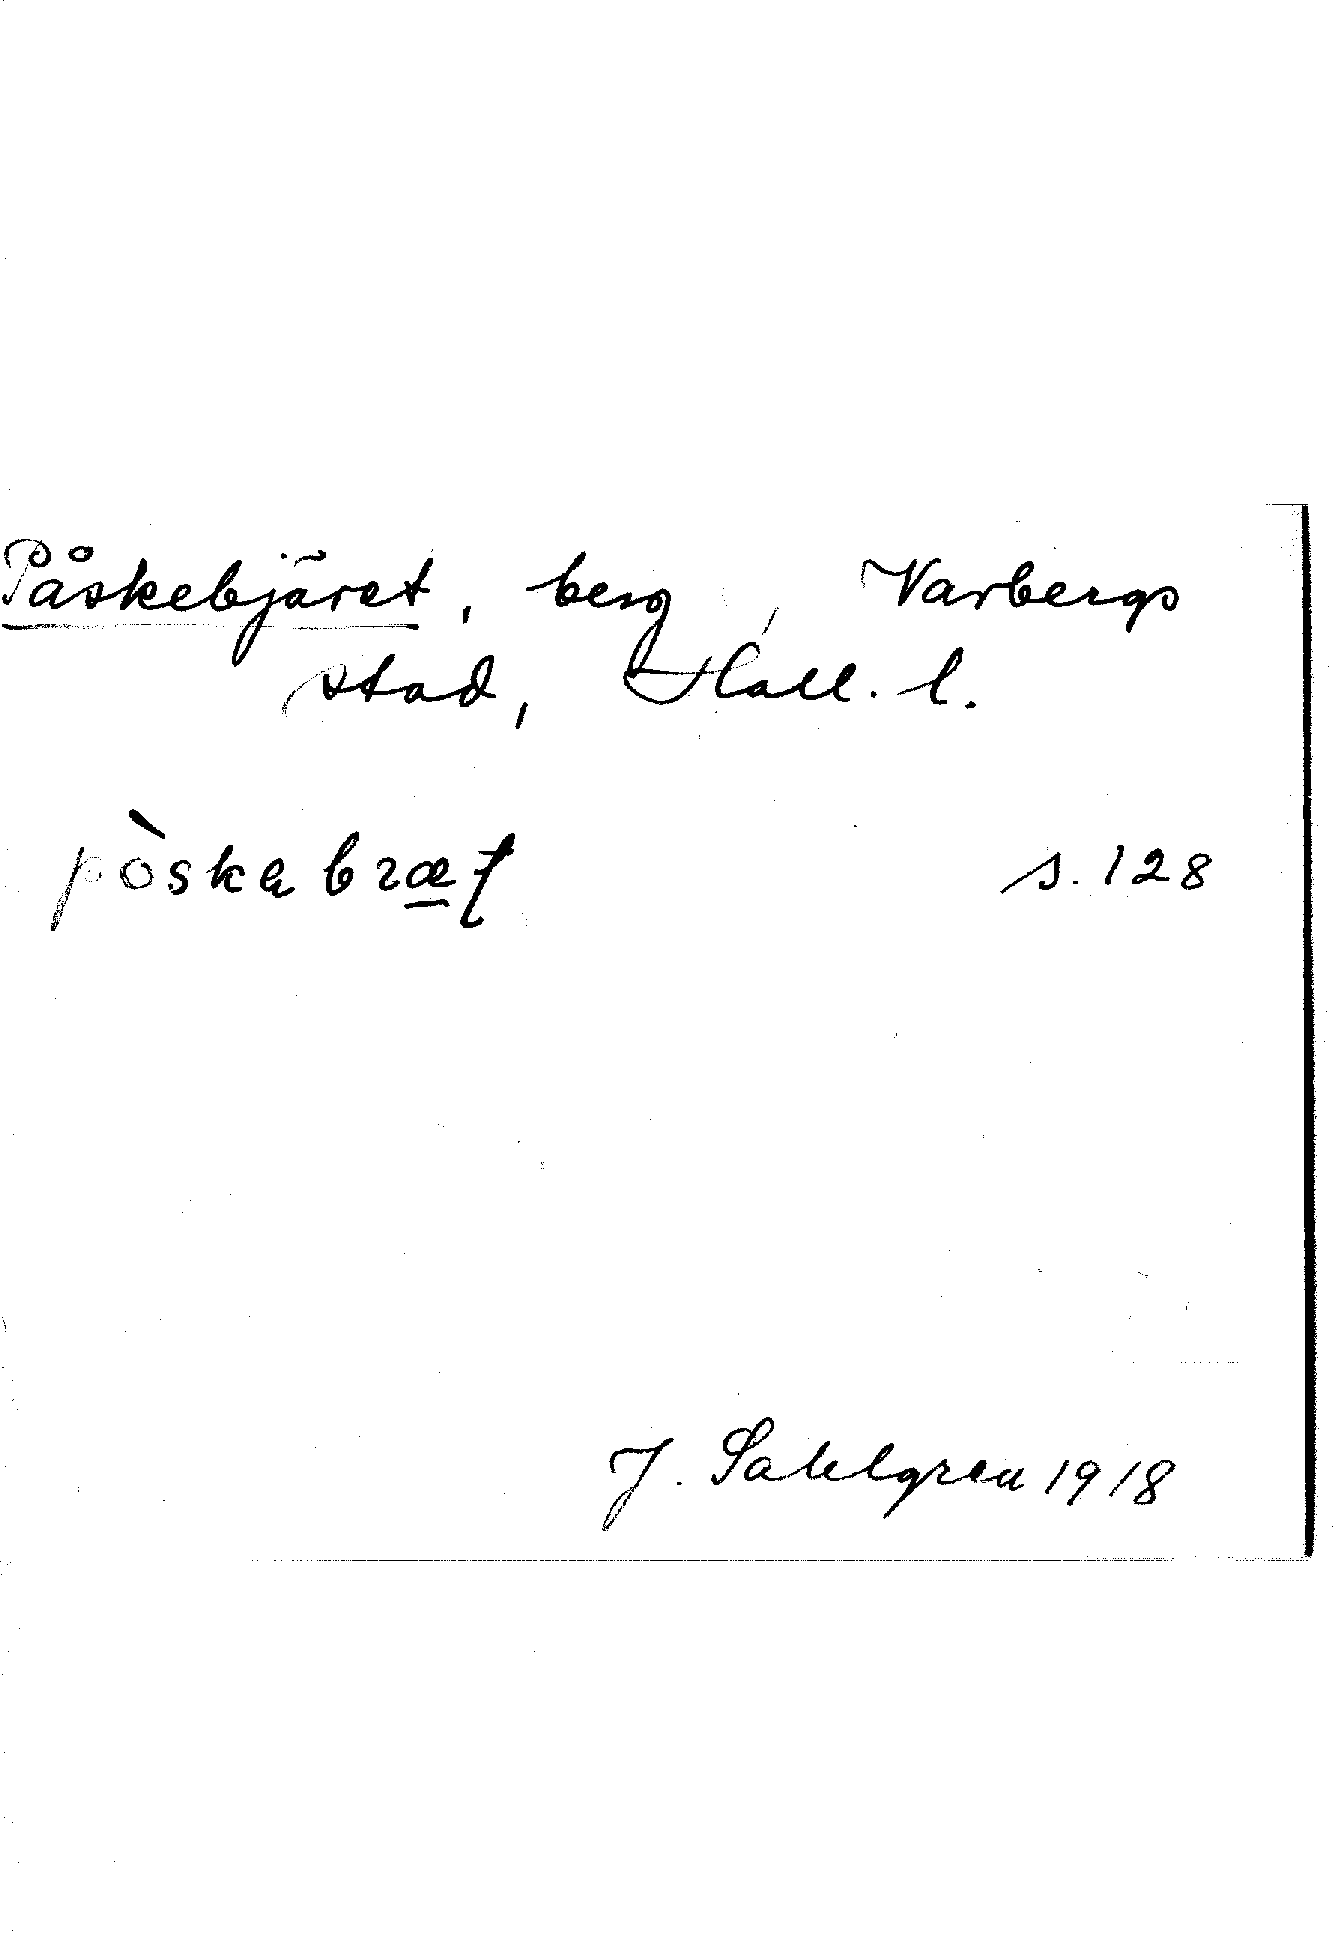 Påskebjäret, berg, Varbergs
stad, Hall. l.
pòskabræt s. 128
J. Sahlgren 1918